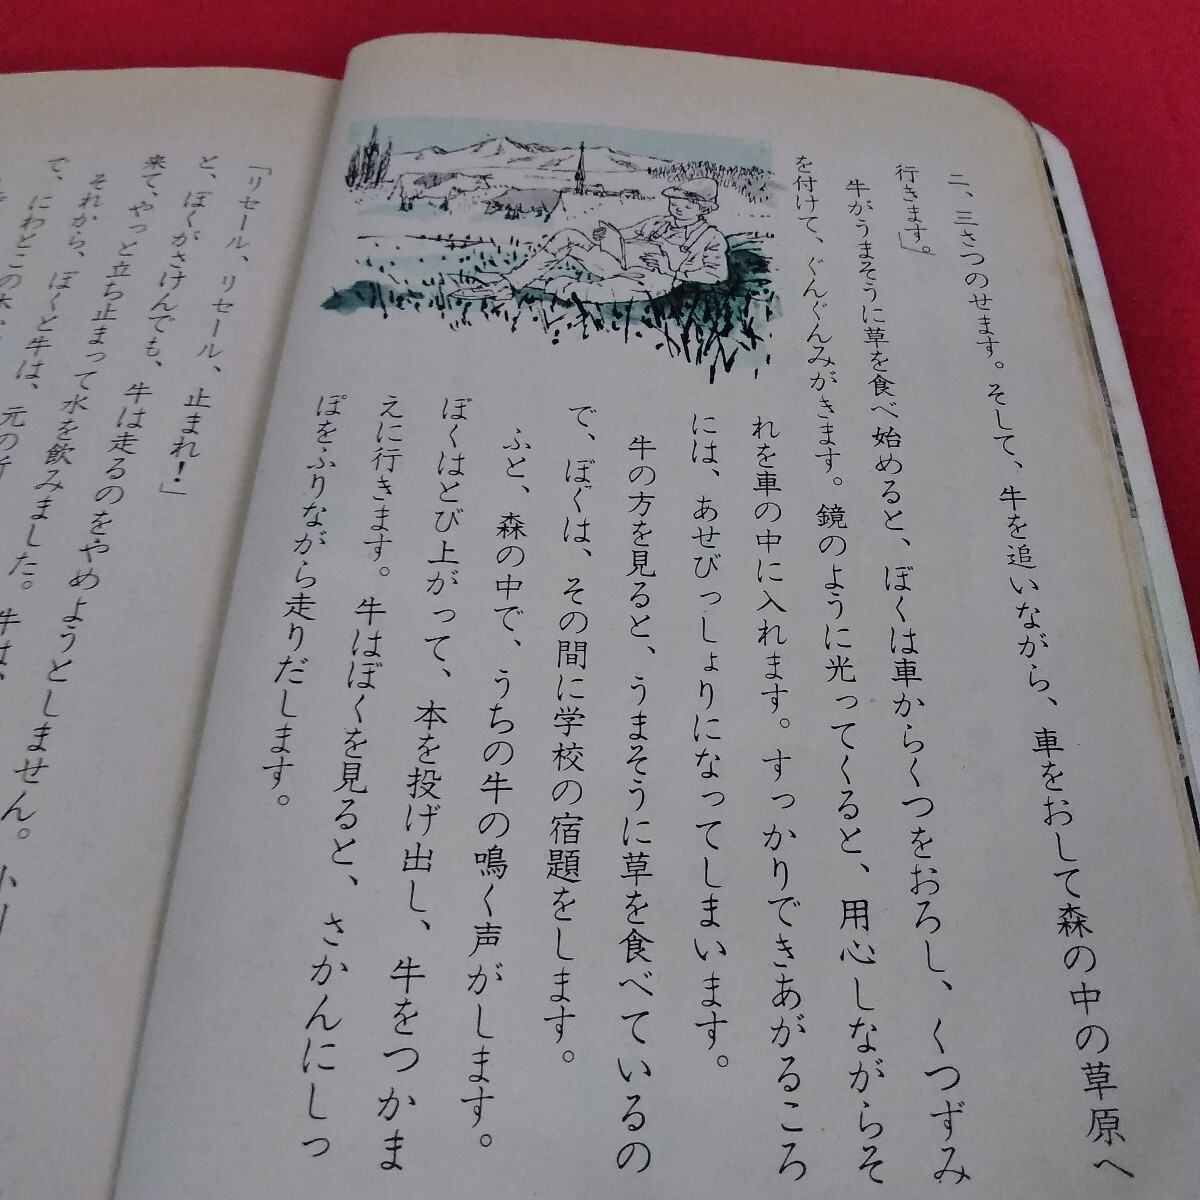 二、三さつのせます。そして、牛を追いながら、車をおして森の中の草原へ
行きます。」
牛がうまそうに草を食べ始めると、ぼくは車からくつをおろし、くつずみ
を付けて、ぐんぐんみがきます。鏡のように光ってくると、用心しながらそ
れを車の中に入れます。すっかりできあがるころ
には、あせびっしょりになってしまいます。
牛の方を見ると、うまそうに草を食べているの
で、ぼくは、その間に学校の宿題をします。
ふと、森の中で、うちの牛の鳴く声がします。
ぼくはとび上がって、本を投げ出し、牛をつかま
えに行きます。牛はぼくを見ると、さかんにしっ
ぽをふりながら走りだします。
「リセール、リセール、止まれ！」
と、ぼくがさけんでも、牛は走るのをやめようとしません。小川
来て、やっと立ち止まって水を飲みました。牛は、
それから、ぼくと牛は、元の所
で、にわとこの木